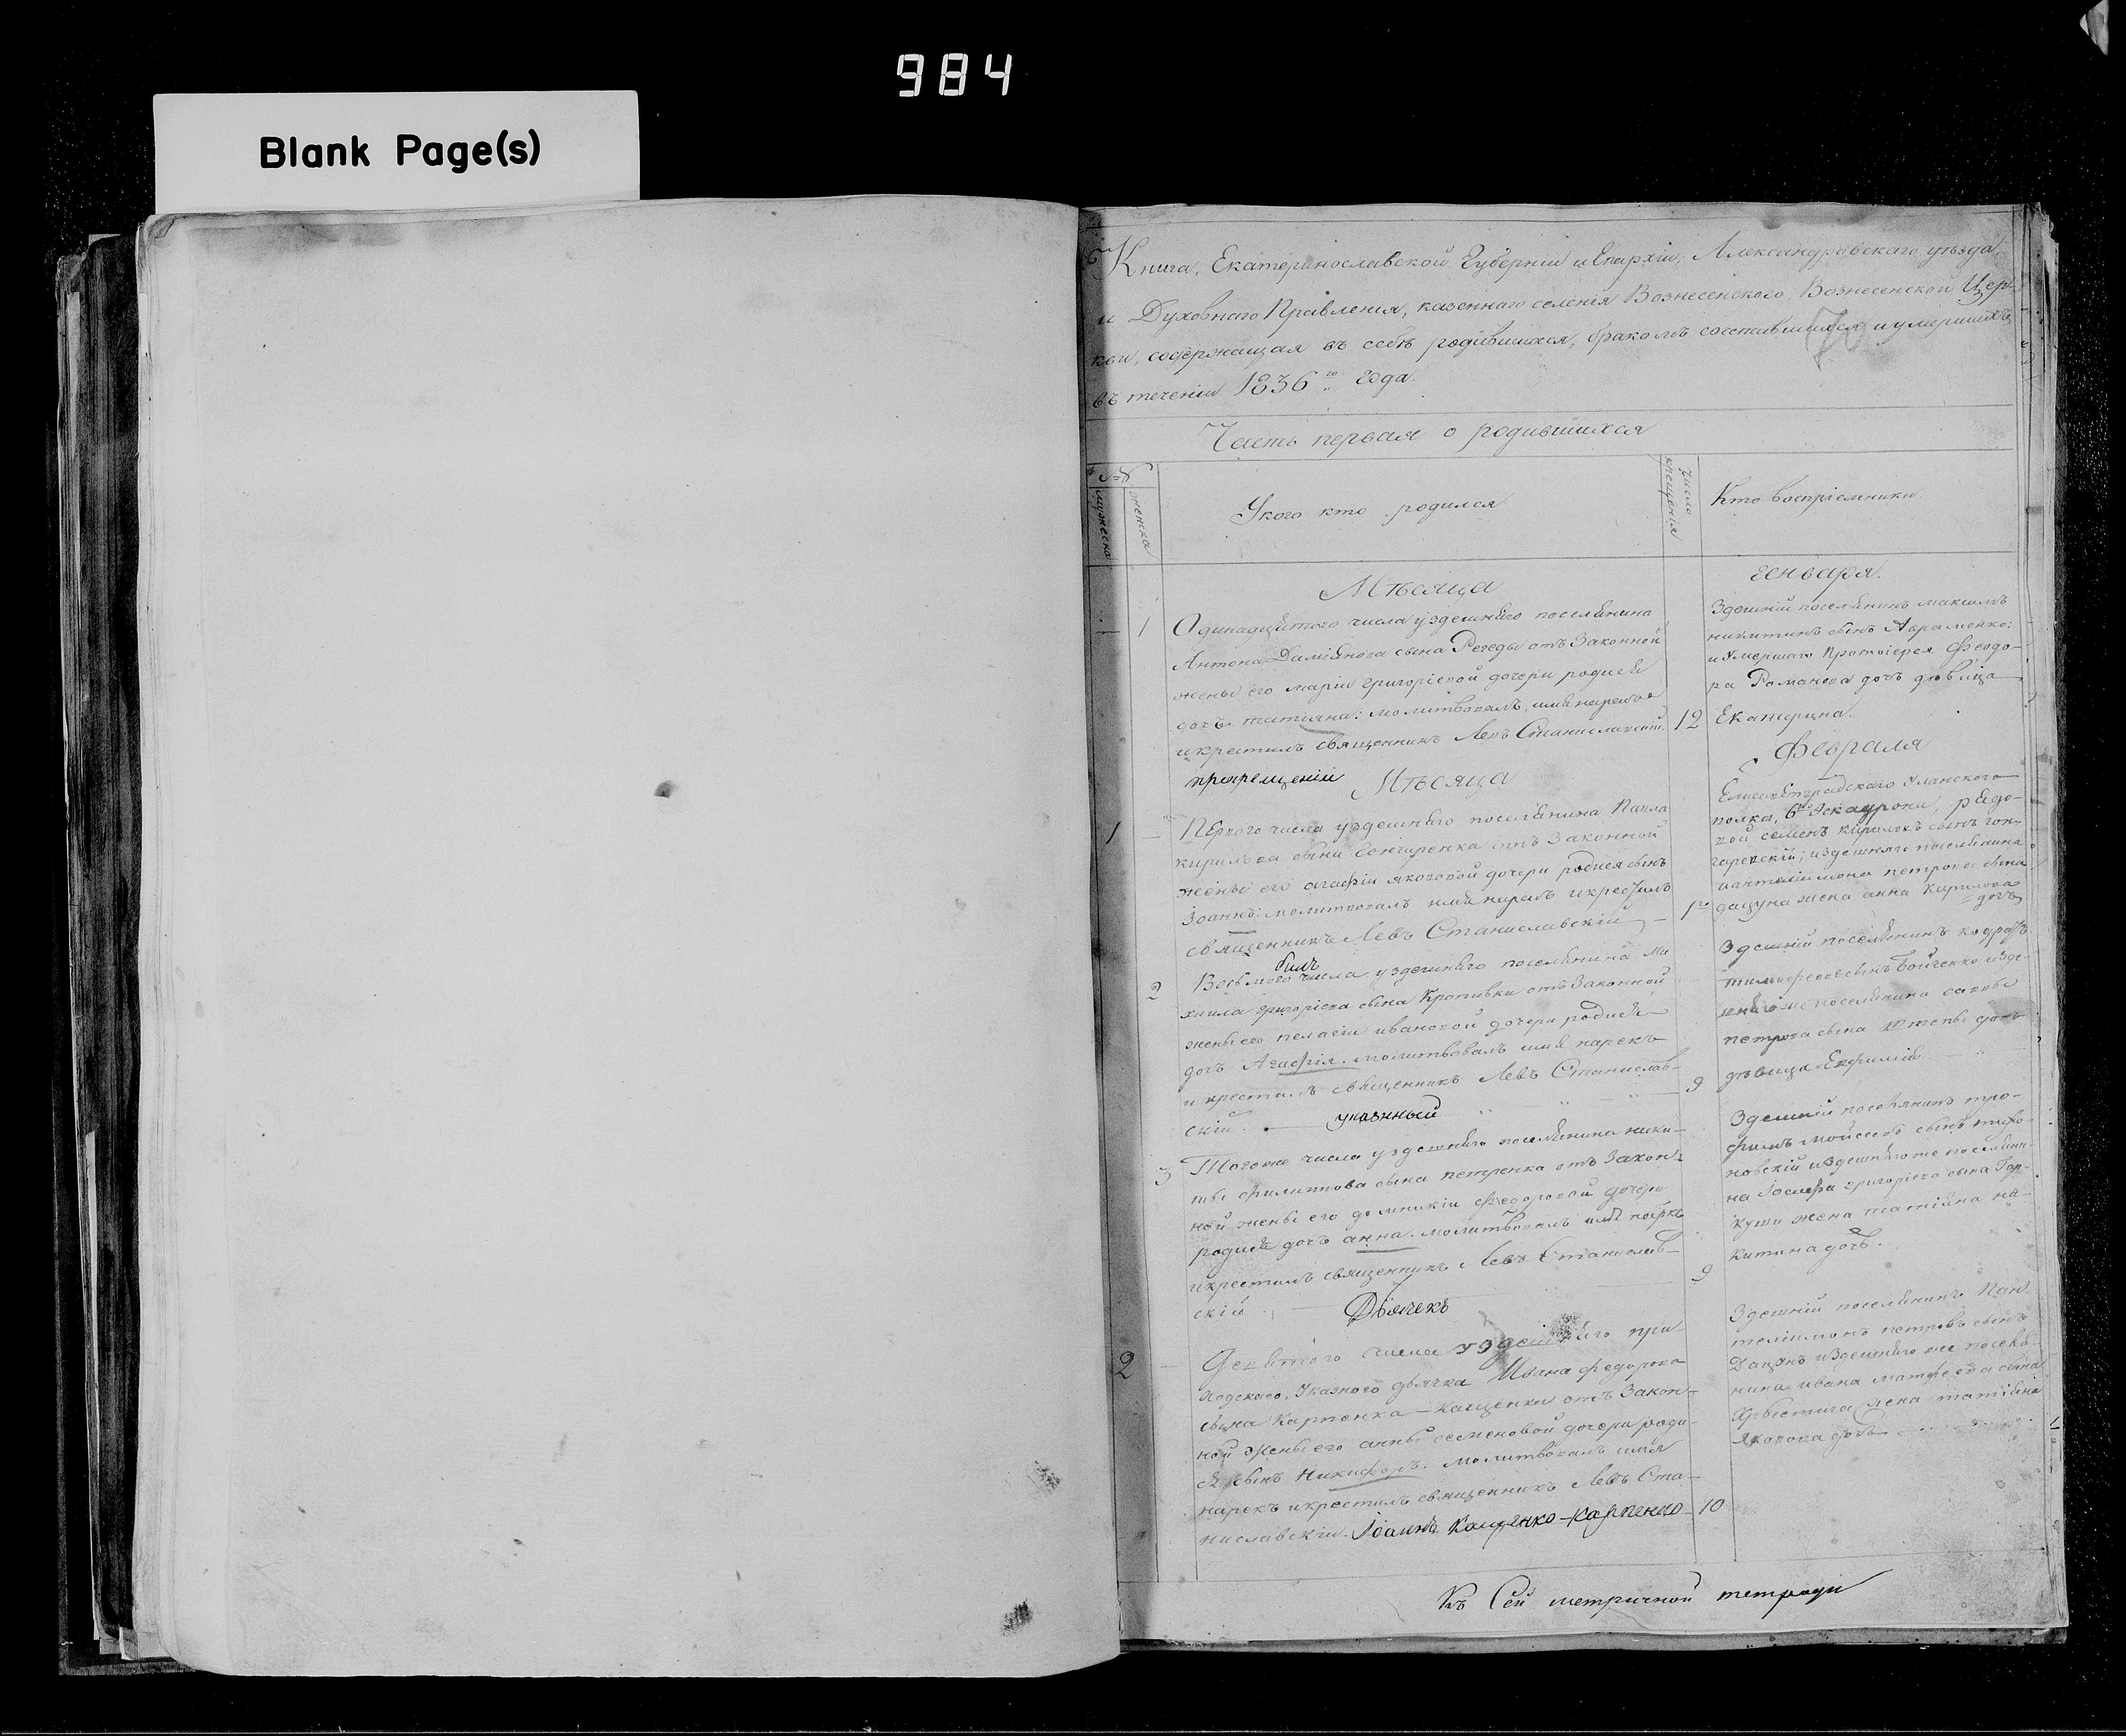 984
Blank Page(s)
Книга, Екатеринославской Губерніи и Епархіи, Александровскаго уѣзда,
и Духовнаго Правленія, казеннаго селенія Вознесенского, Вознесенской Цер-
кви, содержащая въ себѣ родившихся, бракомъ сочетавшихся и умершихъ
въ теченіи 1836го года.
70
Часть первая о родившихся
№
мужеска
женска
Укого кто родился
Число крещенія
Кто воспріемники
Мѣсяца
генваря.
1
Одинадцятого числа уздешняго поселянина
Антона Даміянова сына Регеды отъ Законной
жены его маріи григоріевой дочери родися
дочь татіяна: молитвовалъ, имя нарекъ
икрестилъ священникъ Левъ Станиславскій.
12
Здешній поселянинъ максимъ
никитинъ сынъ Авраменко;
и Умершаго Протоіерея Феодо-
ра Романова дочь дѣвица
Екатерина.
прикрещеніи
Мѣсяца
Февраля
1
Первого числа уздешняго поселянина Павла
кирилова сына Гончаренка отъ Законной
жены его агафіи якововой дочери родися сынъ
Іоаннъ: молитвовалъ имя нарекъ икрестилъ
священникъ Левъ Станиславскій
1го
Елисаветградского Уланского
полка, 6го Эскадрона, рядо-
вой семенъ кириловъ сынъ гон-
чаревскій; издешняго поселянина
пантелимона петрова сына
дацуна жена анна кирилова
дочь
былъ
2
Восьмого числа уздешняго поселянина Ми
хаила григоріева сына Кропивки отъ Законной
жены его пелагіи ивановой дочери родися
дочь Агафія. молитвовалъ имя нарекъ
и крестилъ священникъ Левъ Станислав-
скій.
указный
9
Здешній поселянинъ кодратъ
тимофеевъ сынъ Бойченко изде-
шнягоже поселянина савы
петрова сына дочь
дѣвица Евфимія
3
Тогоже числа уздешняго поселянина ники-
ты филипова сына петренка отъ Закон-
ной жены его домникіи федоровой дочери
родися дочь анна. молитвовалъ имя нарекъ
икрестилъ священникъ Левъ Станислав-
скій.
Дьячекъ
9
Здешній поселянинъ тро-
фимъ мойсеевъ сынъ тихо-
новскій издешнягоже поселяни-
на Іосифа григоріева сына Гор-
куши жена татіяна ни-
китина дочь.
2
Девятого числа уздешняго при-
ходскаго, Указного дьячка Ивана федорова
сына Карпенка-кащенки отъ Закон-
ной жены его анны семеновой дочери роди-
ся сынъ Никифоръ. молитвовалъ имя
нарекъ икрестилъ священникъ Левъ Ста-
ниславскій. Іоаннъ Кащенко-Карпенко
10
Здешній поселянинъ Пан-
телимонъ петровъ сынъ
Дацунъ издешняго же поселя-
нина ивана матфеева сына
жена татіяна
яковова дочь
Къ Сей метричной тетради